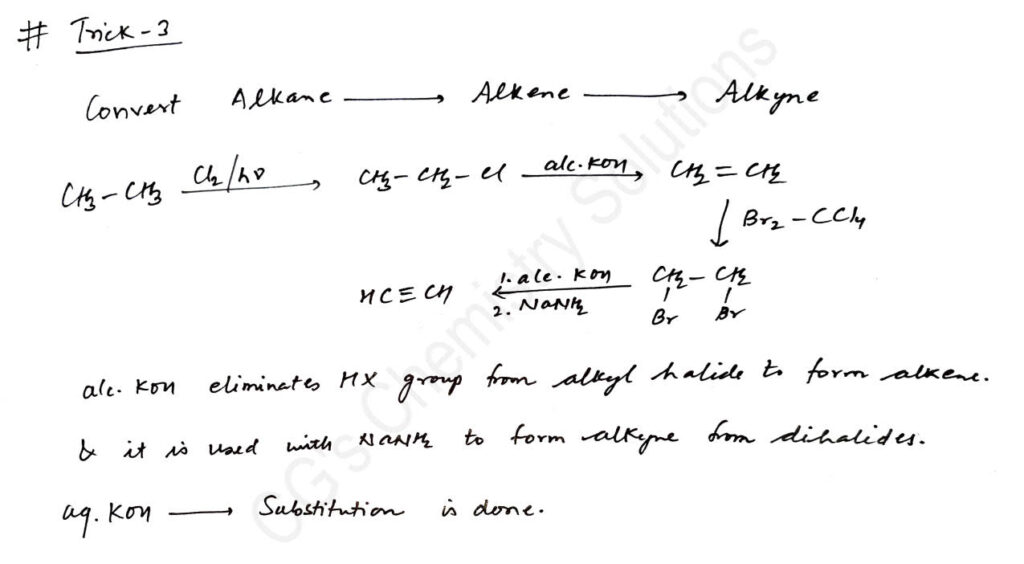 # Trick-3
Convert Alkane ⟶ Alkene ⟶ Alkyne
CH3-CH3 Cl2/hν ⟶ CH3-CH2-Cl alc. KOH ⟶ CH2=CH2
↓ Br2-CCl4
HC≡CH ⟵ 1. alc. KOH 2. NaNH2 CH2-CH2
Br Br
alc. KOH eliminates HX group from alkyl halide to form alkene.
& it is used with NaNH2 to form alkyne from dihalides.
aq. KOH ⟶ Substitution is done.
CG's Chemistry Solutions